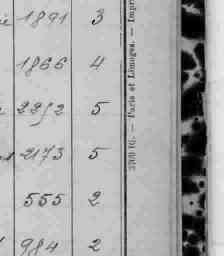 1891 3
1866 4
2252 5
2173 5
555 2
984 2
3709 10. — Paris et Limoges. — Impri